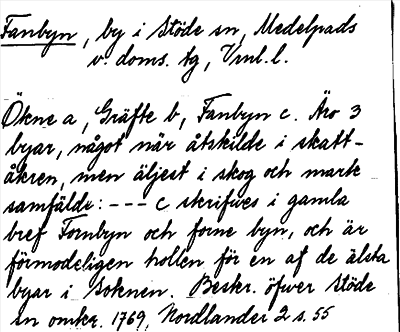 Fanbyn, by i Stöde sn, Medelpads
v. doms. tg, Vnl. l.
Ökne a, Gräfte b, Fanbyn c. Äro 3
byar, något när åtskilde i skatt-
åkren, men äljest i skog och mark
samfälde: --- c skrifves i gamla
bref Fornbyn och forne byn, och är
förmodeligen hollen för en af de älsta
byar i Soknen. Beskr. öfver Stöde
sn omkr. 1769, Nordlander 2 s. 55